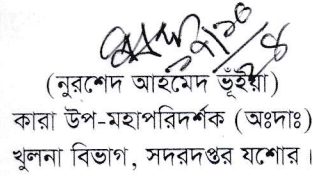 (নুরশেদ আহমেদ ভূঁইয়া)
কারা উপ-মহাপরিদর্শক (অঃদাঃ)
খুলনা বিভাগ, সদরদপ্তর যশোর।